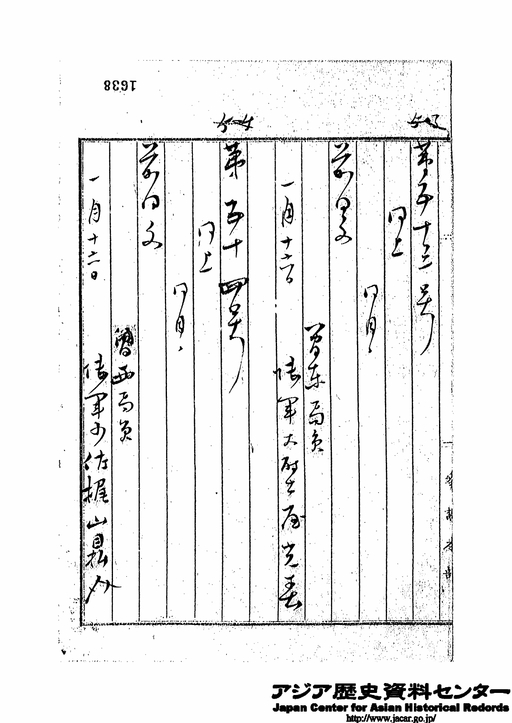 1638
第五十三号
同上
同月、
前同文
一月十六日
管東局員
陸軍大尉土屋光春
第五十四号
同上
同月、
前同文
一月十六日
管西局員
陸軍少佐梶山鼎介
アジア歴史資料センター
Japan Center for Asian Historical Records
http://www.jacar.go.jp/